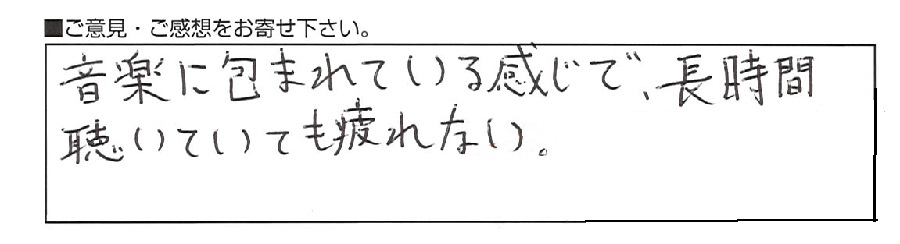 ■ご意見・ご感想をお寄せ下さい。
音楽に包まれている感じで、長時間
聴いていても疲れない。